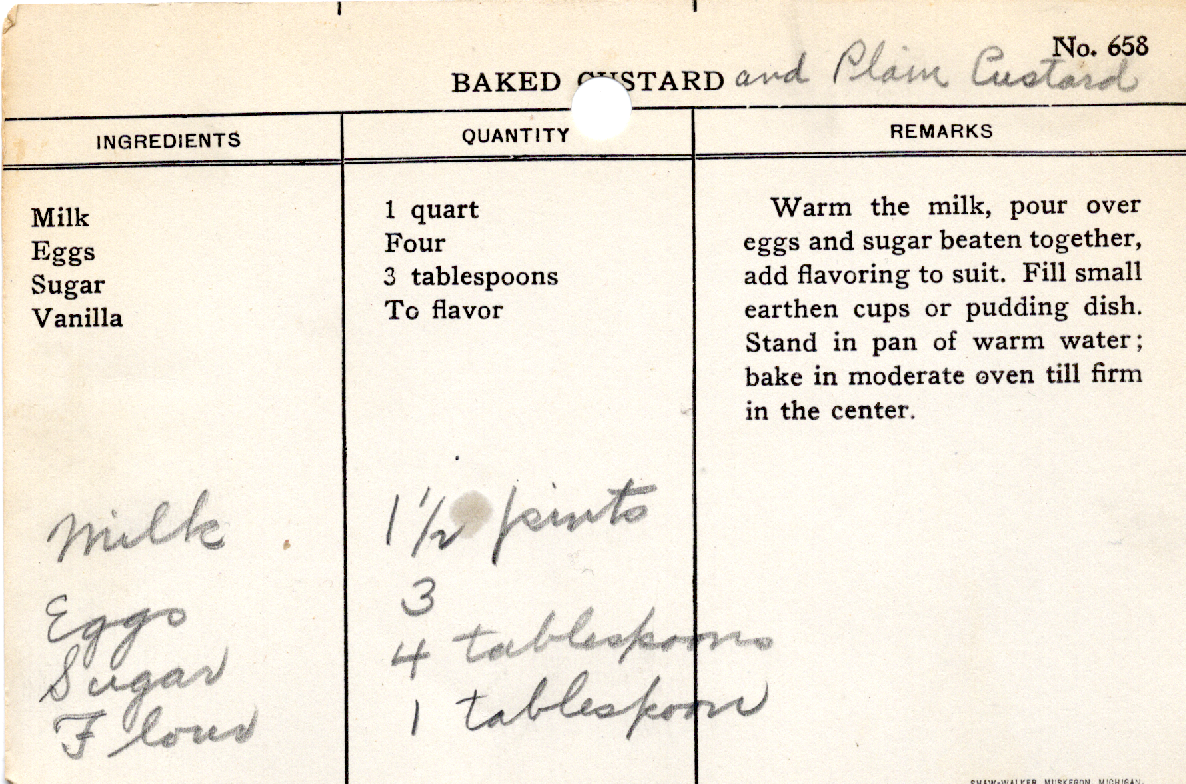 No. 658
BAKED CUSTARD and Plain Custard
INGREDIENTS QUANTITY REMARKS
Milk 1 quart
Eggs Four
Sugar 3 tablespoons
Vanilla To flavor
Warm the milk, pour over
eggs and sugar beaten together,
add flavoring to suit. Fill small
earthen cups or pudding dish.
Stand in pan of warm water;
bake in moderate oven till firm
in the center.
Milk 1 1/2 pints
Eggs 3
Sugar 4 tablespoons
Flour 1 tablespoon
SHAW-WALKER, MUSKEGON, MICHIGAN.